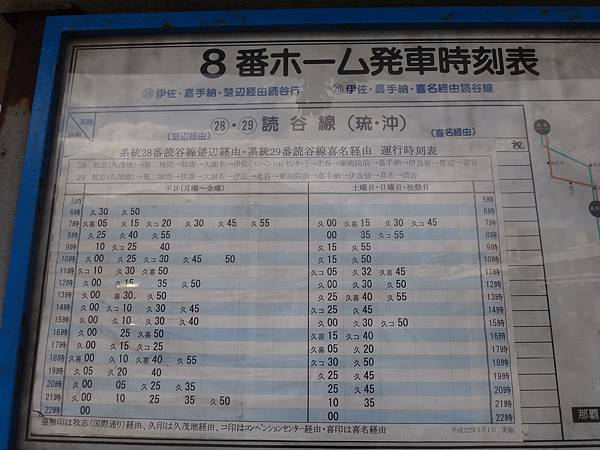 8番ホーム発車時刻表
㉘伊佐・嘉手納・楚辺経由読谷行 ㉙伊佐・嘉手納・喜名経由読谷線
系統
㉘・㉙読谷線(琉・沖)
(楚辺経由) (喜名経由)
系統28番読谷線楚辺経由・系統29番読谷線喜名経由 運行時刻表
平日(月曜~金曜) 土曜日・日曜日・祝祭日
5時 5時
6時 久30 久50 6時
7時 久喜05 久15 久コ20 久30 久45 久55 久00 久喜15 久30 久コ45 7時
8時 久25 久40 久55 00 35 久コ55 8時
9時 10 久コ25 40 久15 久55 9時
10時 久00 久25 久コ30 久45 50 久15 久50 10時
11時 久コ10 久30 久喜50 久コ05 久32 久喜45 11時
12時 久00 久15 35 久50 久00 久30 久50 12時
13時 久00 喜30 久50 久25 久喜40 久55 13時
14時 久00 久コ10 久30 久45 久コ25 久45 14時
15時 久00 久10 久30 久40 久00 久30 久コ50 15時
16時 久00 25 久喜50 久喜15 久コ40 16時
17時 久00 久15 久コ25 久喜05 久20 17時
18時 久喜00 久10 久喜40 久55 久コ30 久50 18時
19時 久05 久20 40 久25 久45 19時
20時 久00 05 久25 久35 25 久45 20時
21時 久00 久10 久25 35 50 10 35 21時
22時 00 22時
※無印は牧志(国際通り)経由、久印は久茂地経由、コ印はコンベンションセンター経由・喜印は喜名経由
平成22年3月1日 実施
那覇